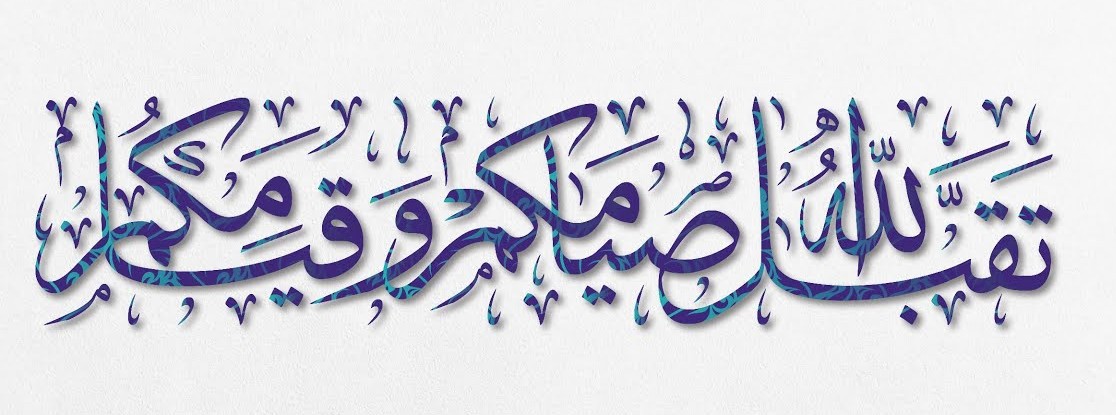 تَقَبَّلَ اللّٰهُ صِيَامَكُمْ وَقِيَامَكُمْ